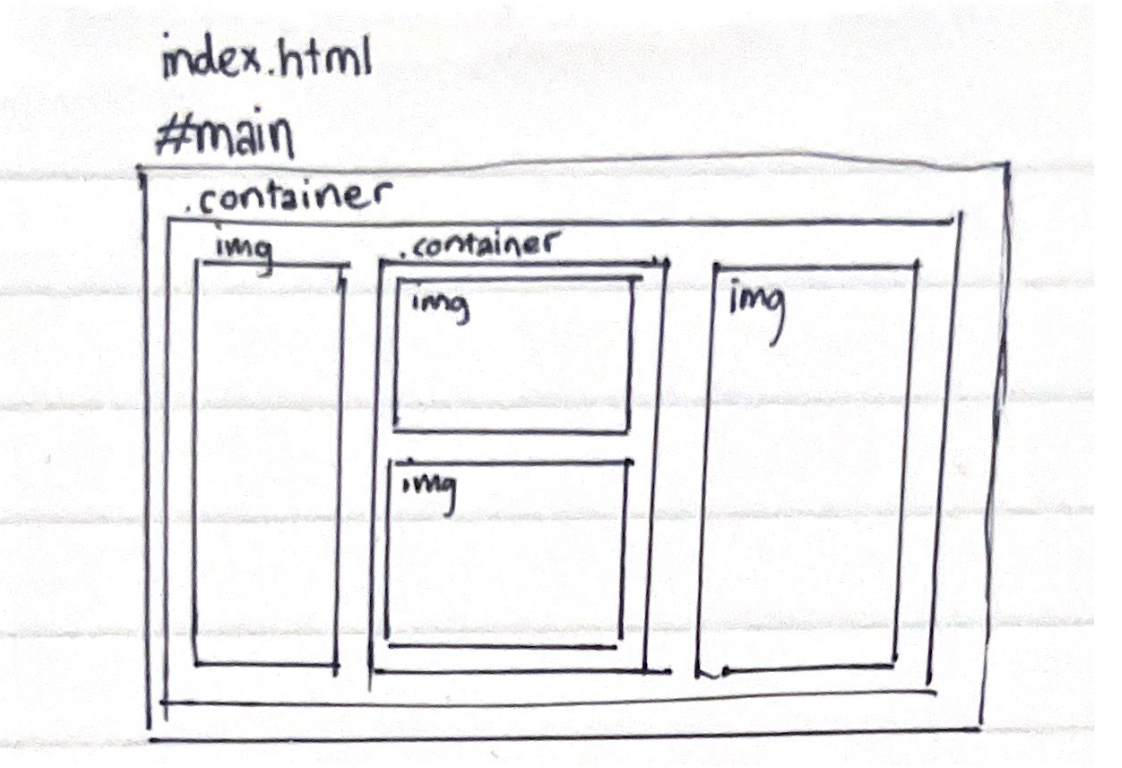 index.html
#main
.container
img
.container
img
img
img